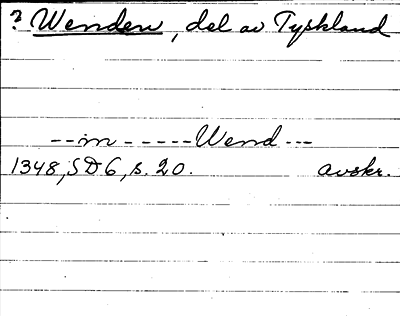 ? Wenden, del av Tyskland
--in-----Wend---
1348, SD 6, s. 20. avskr.